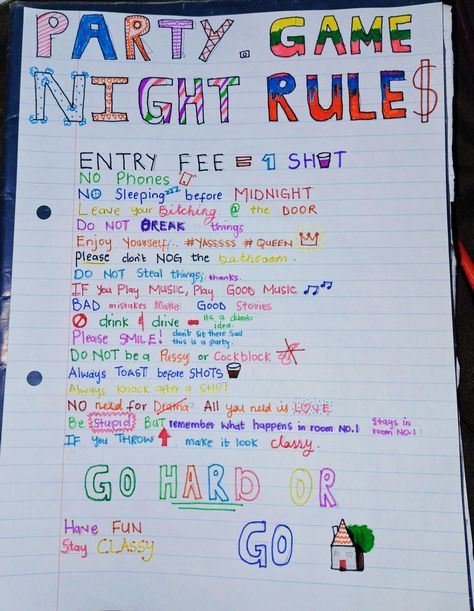 PARTY. GAME
NIGHT RULE$
ENTRY FEE = 1 SHOT
NO Phones
NO Sleeping zzz before MIDNIGHT
Leave your Bitching @ the DOOR
Do NOT BREAK things
Enjoy Yourself... #YASSSSS #QUEEN
Please don't NOG the bathroom.
DO NOT Steal things, thanks.
IF You Play MUSIC, Play GOOD MUSIC
BAD mistakes Make GOOD Stories
drink & drive = its a dumb idea.
Please SMILE! don't sit there sad this is a party.
DO NOT be a Pussy or Cockblock
Always TOAST before SHOTS
Always knock after a SHOT
NO need for Drama All you need is LOVE
Be Stupid BUT remember what happens in room NO.1 Stays in room NO.1
IF you THROW ↑, make it look classy.
GO HARD OR
GO
Have FUN
Stay CLASSY